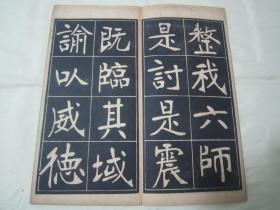 整我六師
是討是震
既臨其域
諭以威德